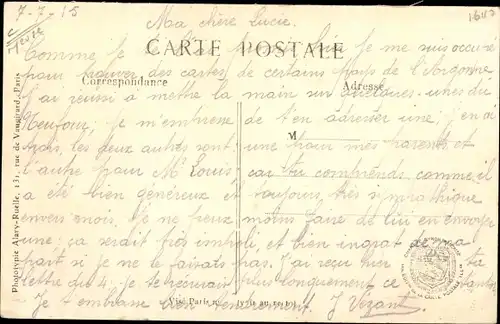 7-7-15
Ma chère Lucie.
1642
CARTE POSTALE
Comme je je me suis occupé
pour trouver des cartes de certains pays de l'Argonne
Correspondance
Adresse
j'ai réussi à mettre la main sur quelques-unes du
Neufour, je m'empresse de t'en adresser une; j'en ai
M
trois, les deux autres sont: une pour mes parents et
l'autre pour Mr Louis, car tu comprends comme il
a été bien généreux et toujours très sympathique
envers moi, je ne peux moins faire de lui en envoyer
une; ça serait très impoli et bien ingrat de ma
part si je ne le faisais pas. J'ai reçu hier ta
lettre du 4, je t'écrirai plus longuement ce
Visé Paris n°
Je t'embrasse bien tendrement. J Vezant
Phototypie Alary-Ruelle, 131, rue de Vaugirard, Paris